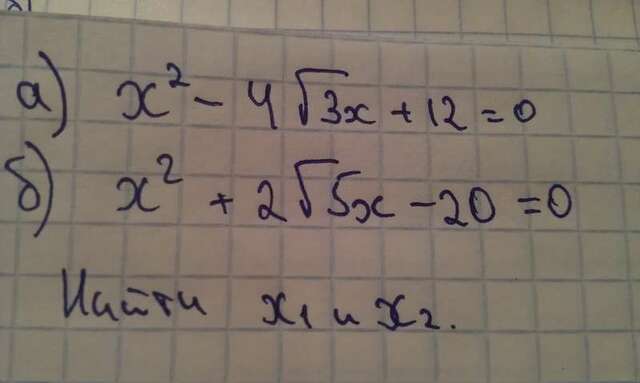 а) x² - 4√3x + 12 = 0
б) x² + 2√5x - 20 = 0
Найти x₁ и x₂.